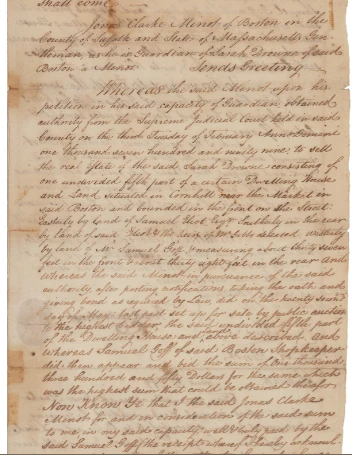 shall come
Jonas Clarke Minot of Boston in the
County of Suffolk and State of Massachusetts Gen-
tleman, as he is Guardian of Sarah Browne of said
Boston a Minor Sends Greeting
Whereas the said Minot upon his
petition in his said capacity of Guardian obtained
authority from the Supreme Judicial Court held in said
County on the third Tuesday of February Anno Domini
one thousand seven hundred and ninety nine, to sell
the real Estate of the said Sarah Browne consisting of
one undivided fifth part of a certain Dwelling House
and Land situated in Cornhill near the Market in
said Boston and bounded in the front on the Street
Easterly by Land of Samuel Eliot Esqr Southerly in the rear
by land of said Eliot & the heirs of deceased, westerly
by land of Mr Samuel measuring about thirty seven
feet in the front, about thirty eight feet in the rear And
Whereas the said Minot in pursuance of the said
authority, after posting notifications, taking the oath and
giving bond as required by Law, did on the twenty second
day of May last past set up for sale by public auction
to the highest bidder, the said undivided fifth part
of the Dwelling House and above described. And
whereas Samuel Goff of said Boston Shopkeeper
did then appear and bid the sum of One thousand
three hundred and fifty Dollars for the same which
was the highest sum that could be obtained therefor
Now Know Ye that I the said Jonas Clarke
Minot for and in consideration of the said sum
to me in my said capacity well & truly paid by the
said Samuel Goff (the receipt whereof I hereby acknowl-